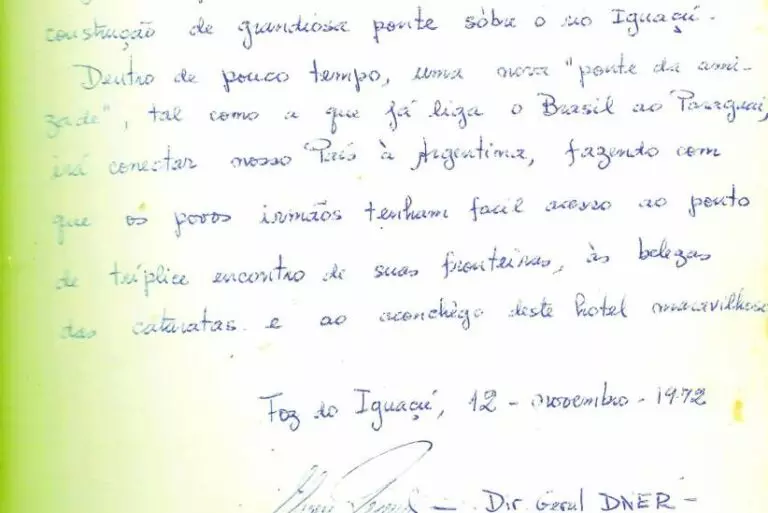 construção de grandiosa ponte sôbre o rio Iguaçú.
Dentro de pouco tempo, uma nova "ponte da ami-
zade", tal como a que já liga o Brasil ao Paraguai,
irá conectar nosso País à Argentina, fazendo com
que os povos irmãos tenham facil acesso ao ponto
de tríplice encontro de suas fronteiras, às belezas
das cataratas e ao aconchêgo deste hotel maravilhoso
Foz do Iguaçú, 12 - novembro - 1972
- Dir. Geral DNER -